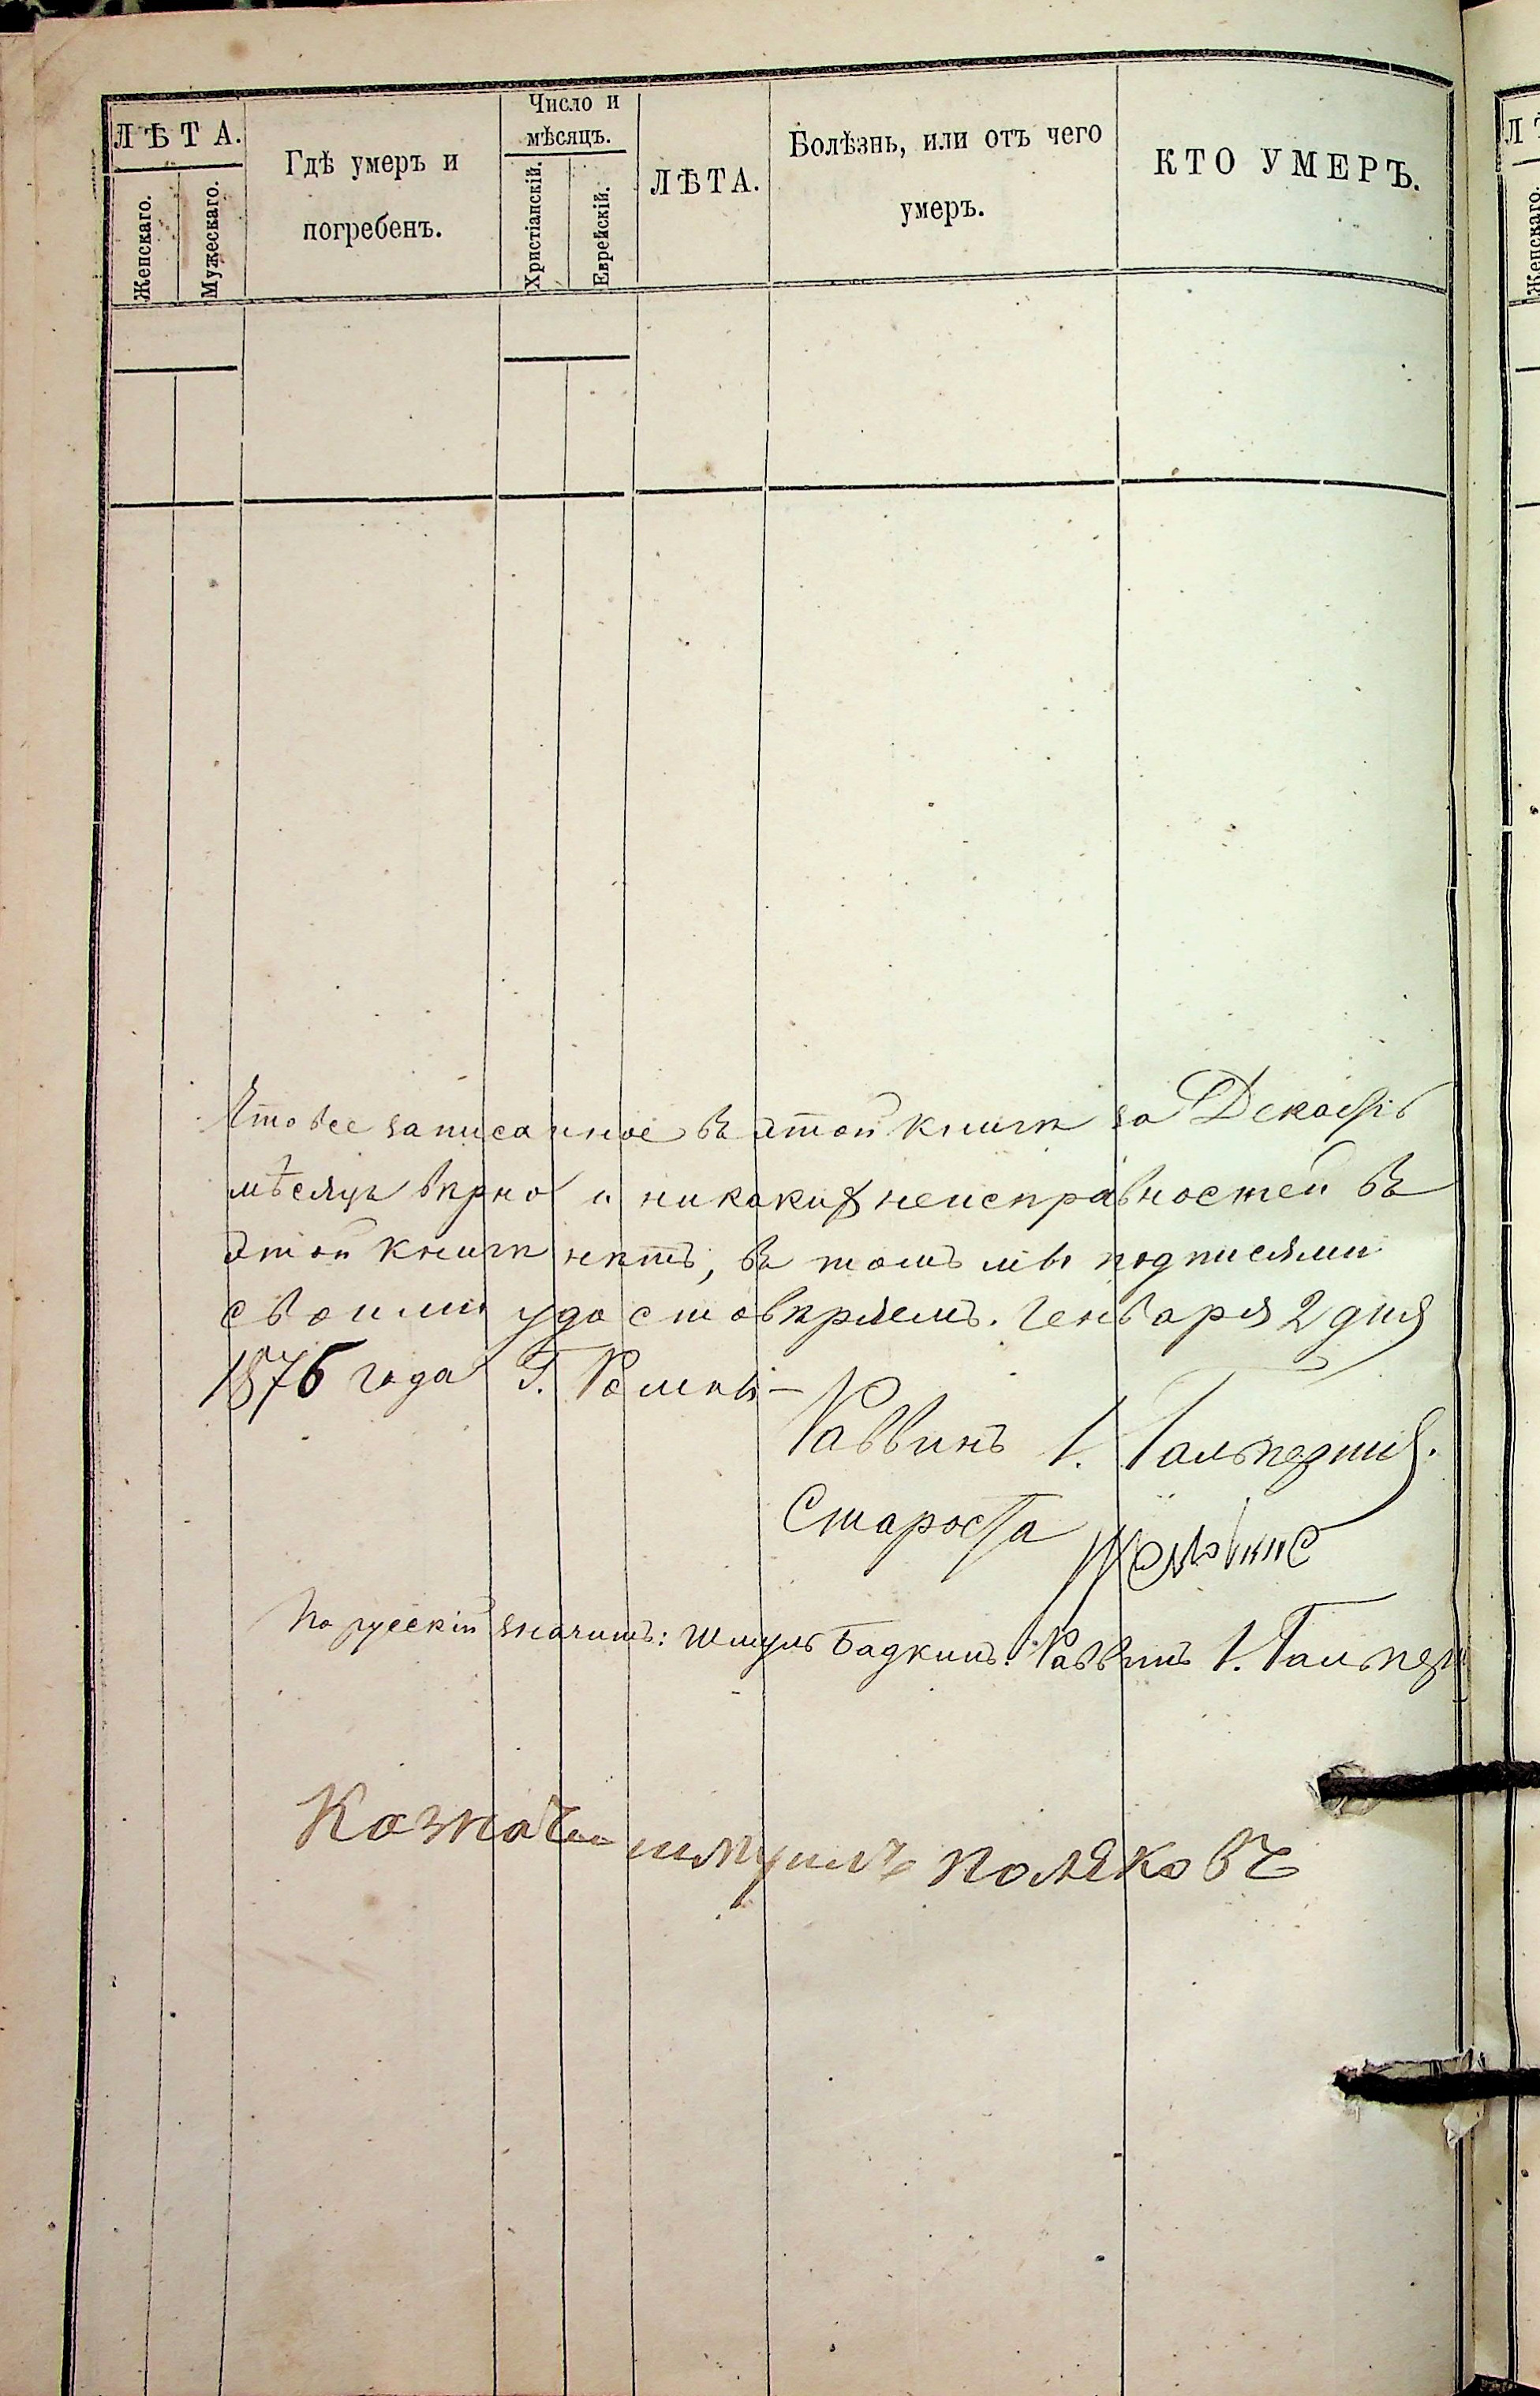 ЛѢТА.
Женскаго.
Мужескаго.
Гдѣ умеръ и
погребенъ.
Число и
мѣсяцъ.
Христіанскій.
Еврейскій.
ЛѢТА.
Болѣзнь, или отъ чего
умеръ.
КТО УМЕРЪ.
Что все записанное въ этой книгѣ за Декабрь
мѣсяцъ вѣрно и никакихъ неисправностей въ
этой книгѣ нѣтъ, въ томъ мы подписями
своими удостовѣряемъ. Генваря 2 дня
1876 года Г. Ромны
Раввинъ I. Гальперинъ.
Староста
По русскій значитъ: Шмуль Бадкинъ. Раввинъ I. Гальпер
Казначей шмуилъ поляковъ
Женскаго.